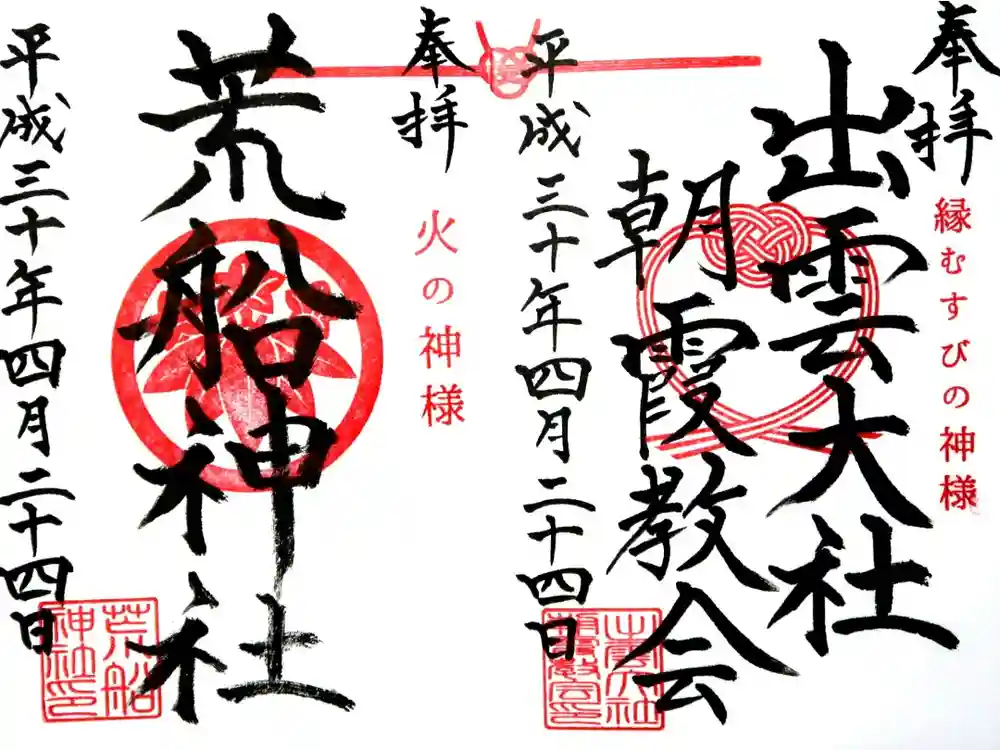 奉拝
縁むすびの神様
出雲大社
朝霞教会
平成三十年四月二十四日
出雲大社
朝霞教会印
奉拝
火の神様
荒船神社
平成三十年四月二十四日
荒船
神社印